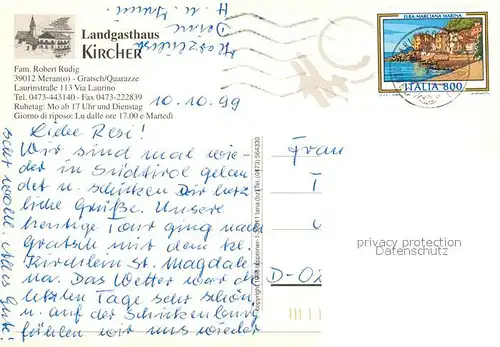 Landgasthaus
KIRCHER
Fam. Robert Rudig
39012 Meran(o) - Gratsch/Quarazze
Laurinstraße 113 Via Laurino
Tel. 0473-443140 - Fax 0473-222839
Ruhetag: Mo ab 17 Uhr und Dienstag
Giorno di riposo: Lu dalle ore 17.00 e Martedì
ELBA-MARCIANA MARINA
ITALIA 800
10.10.99
Liebe Resi!
Wir sind mal wie-
der in Südtirol gelan
det u. schicken Dir herz
liche Grüße. Unsere
heutige Tour ging nach
Gratsch mit dem kl.
Kirchlein St. Magdale
na. Das Wetter war die
letzten Tage sehr schön,
u. auf der Schickenburg
fühlen wir uns wieder
sehr wohl. Alles Gute!
Herzlichst
Deine
H. u.
Frau
T
D-
privacy protection
Datenschutz